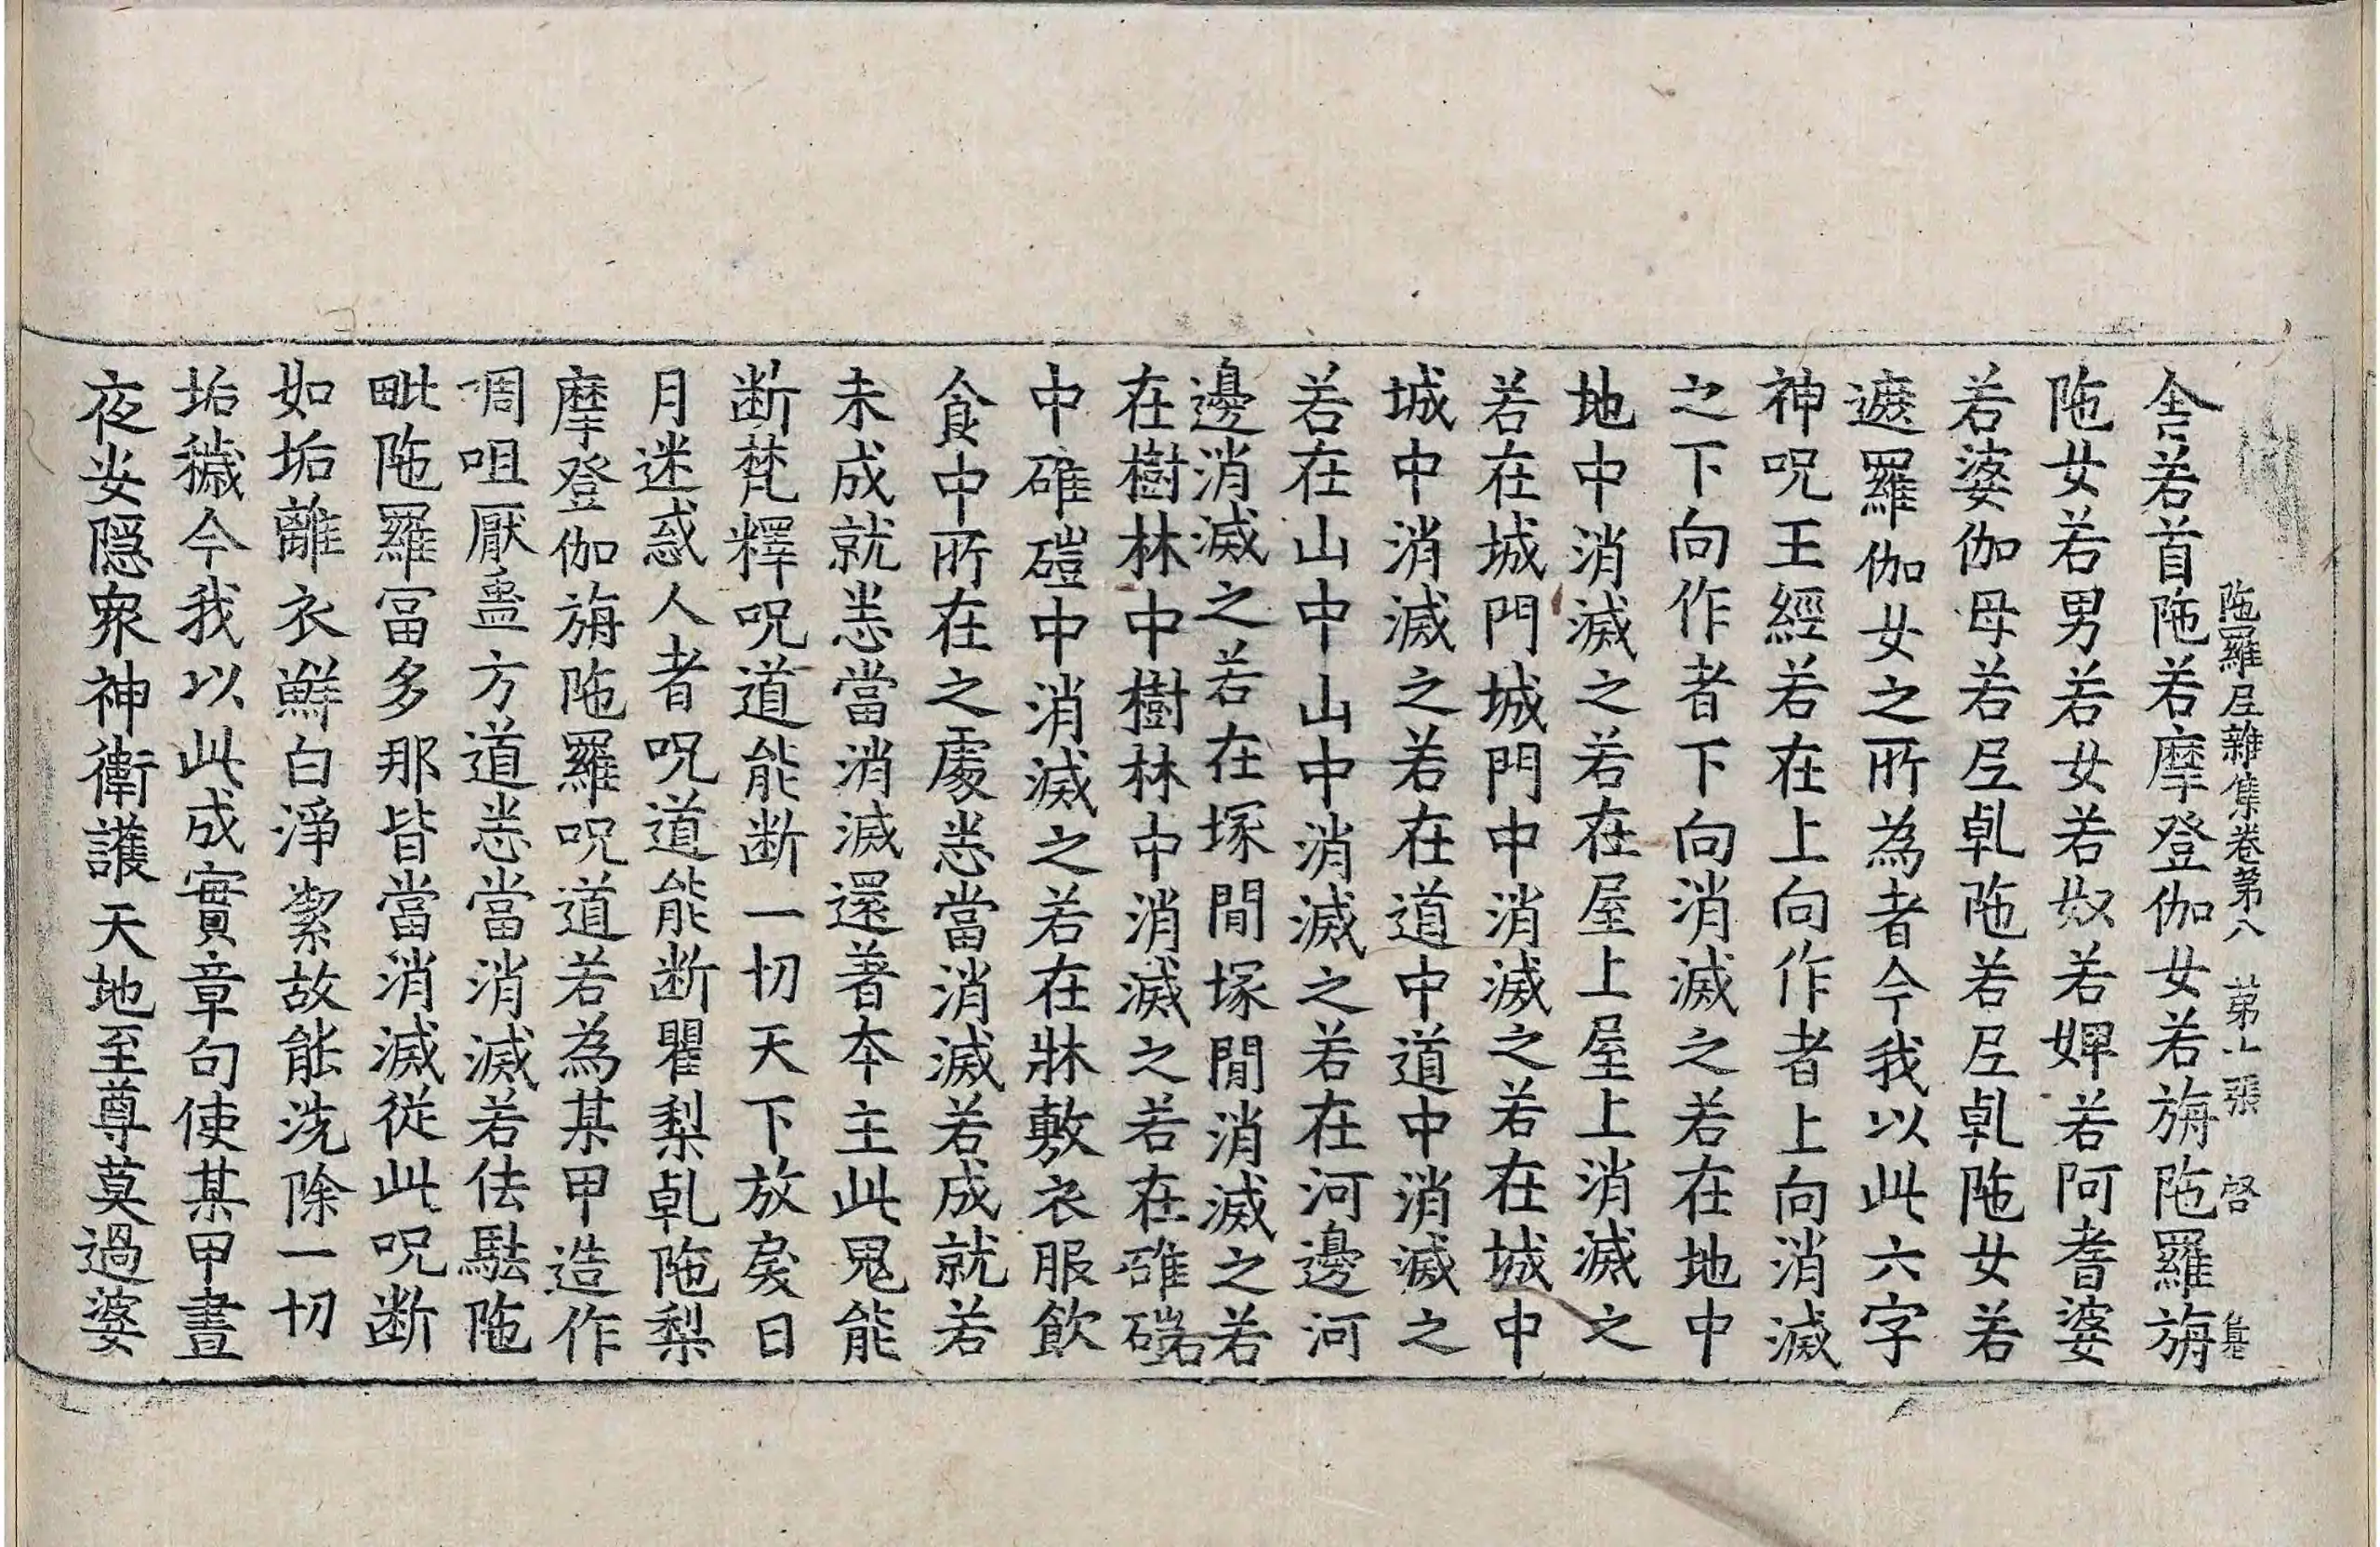 陁羅尼雜集卷第八 第十張 啓
舎若首陁若摩登伽女若旃陁羅旃
陁女若男若女若奴若婢若阿耆婆
若婆伽母若尼乹陁若尼乹陁女若
遮羅伽女之所為者今我以此六字
神呪王經若在上向作者上向消滅
之下向作者下向消滅之若在地中
地中消滅之若在屋上屋上消滅之
若在城門城門中消滅之若在城中
城中消滅之若在道中道中消滅之
若在山中山中消滅之若在河邊河
邊消滅之若在塚間塚間消滅之若
在樹林中樹林中消滅之若在碓磑若
中碓磑中消滅之若在牀敷衣服飲
食中所在之處悉當消滅若成就若
未成就悉當消滅還著本主此鬼能
断梵釋呪道能断一切天下放矦日
月迷惑人者呪道能断瞿梨乹陁梨
摩登伽旃陁羅呪道若為某甲造作
啁咀厭蠱方道悉當消滅若佉駄陁
毗陁羅冨多那皆當消滅従此呪断
如垢離衣鮮白淨絜故能洗除一切
垢穢今我以此成實章句使某甲晝
夜安隠衆神衛護天地至尊莫過婆